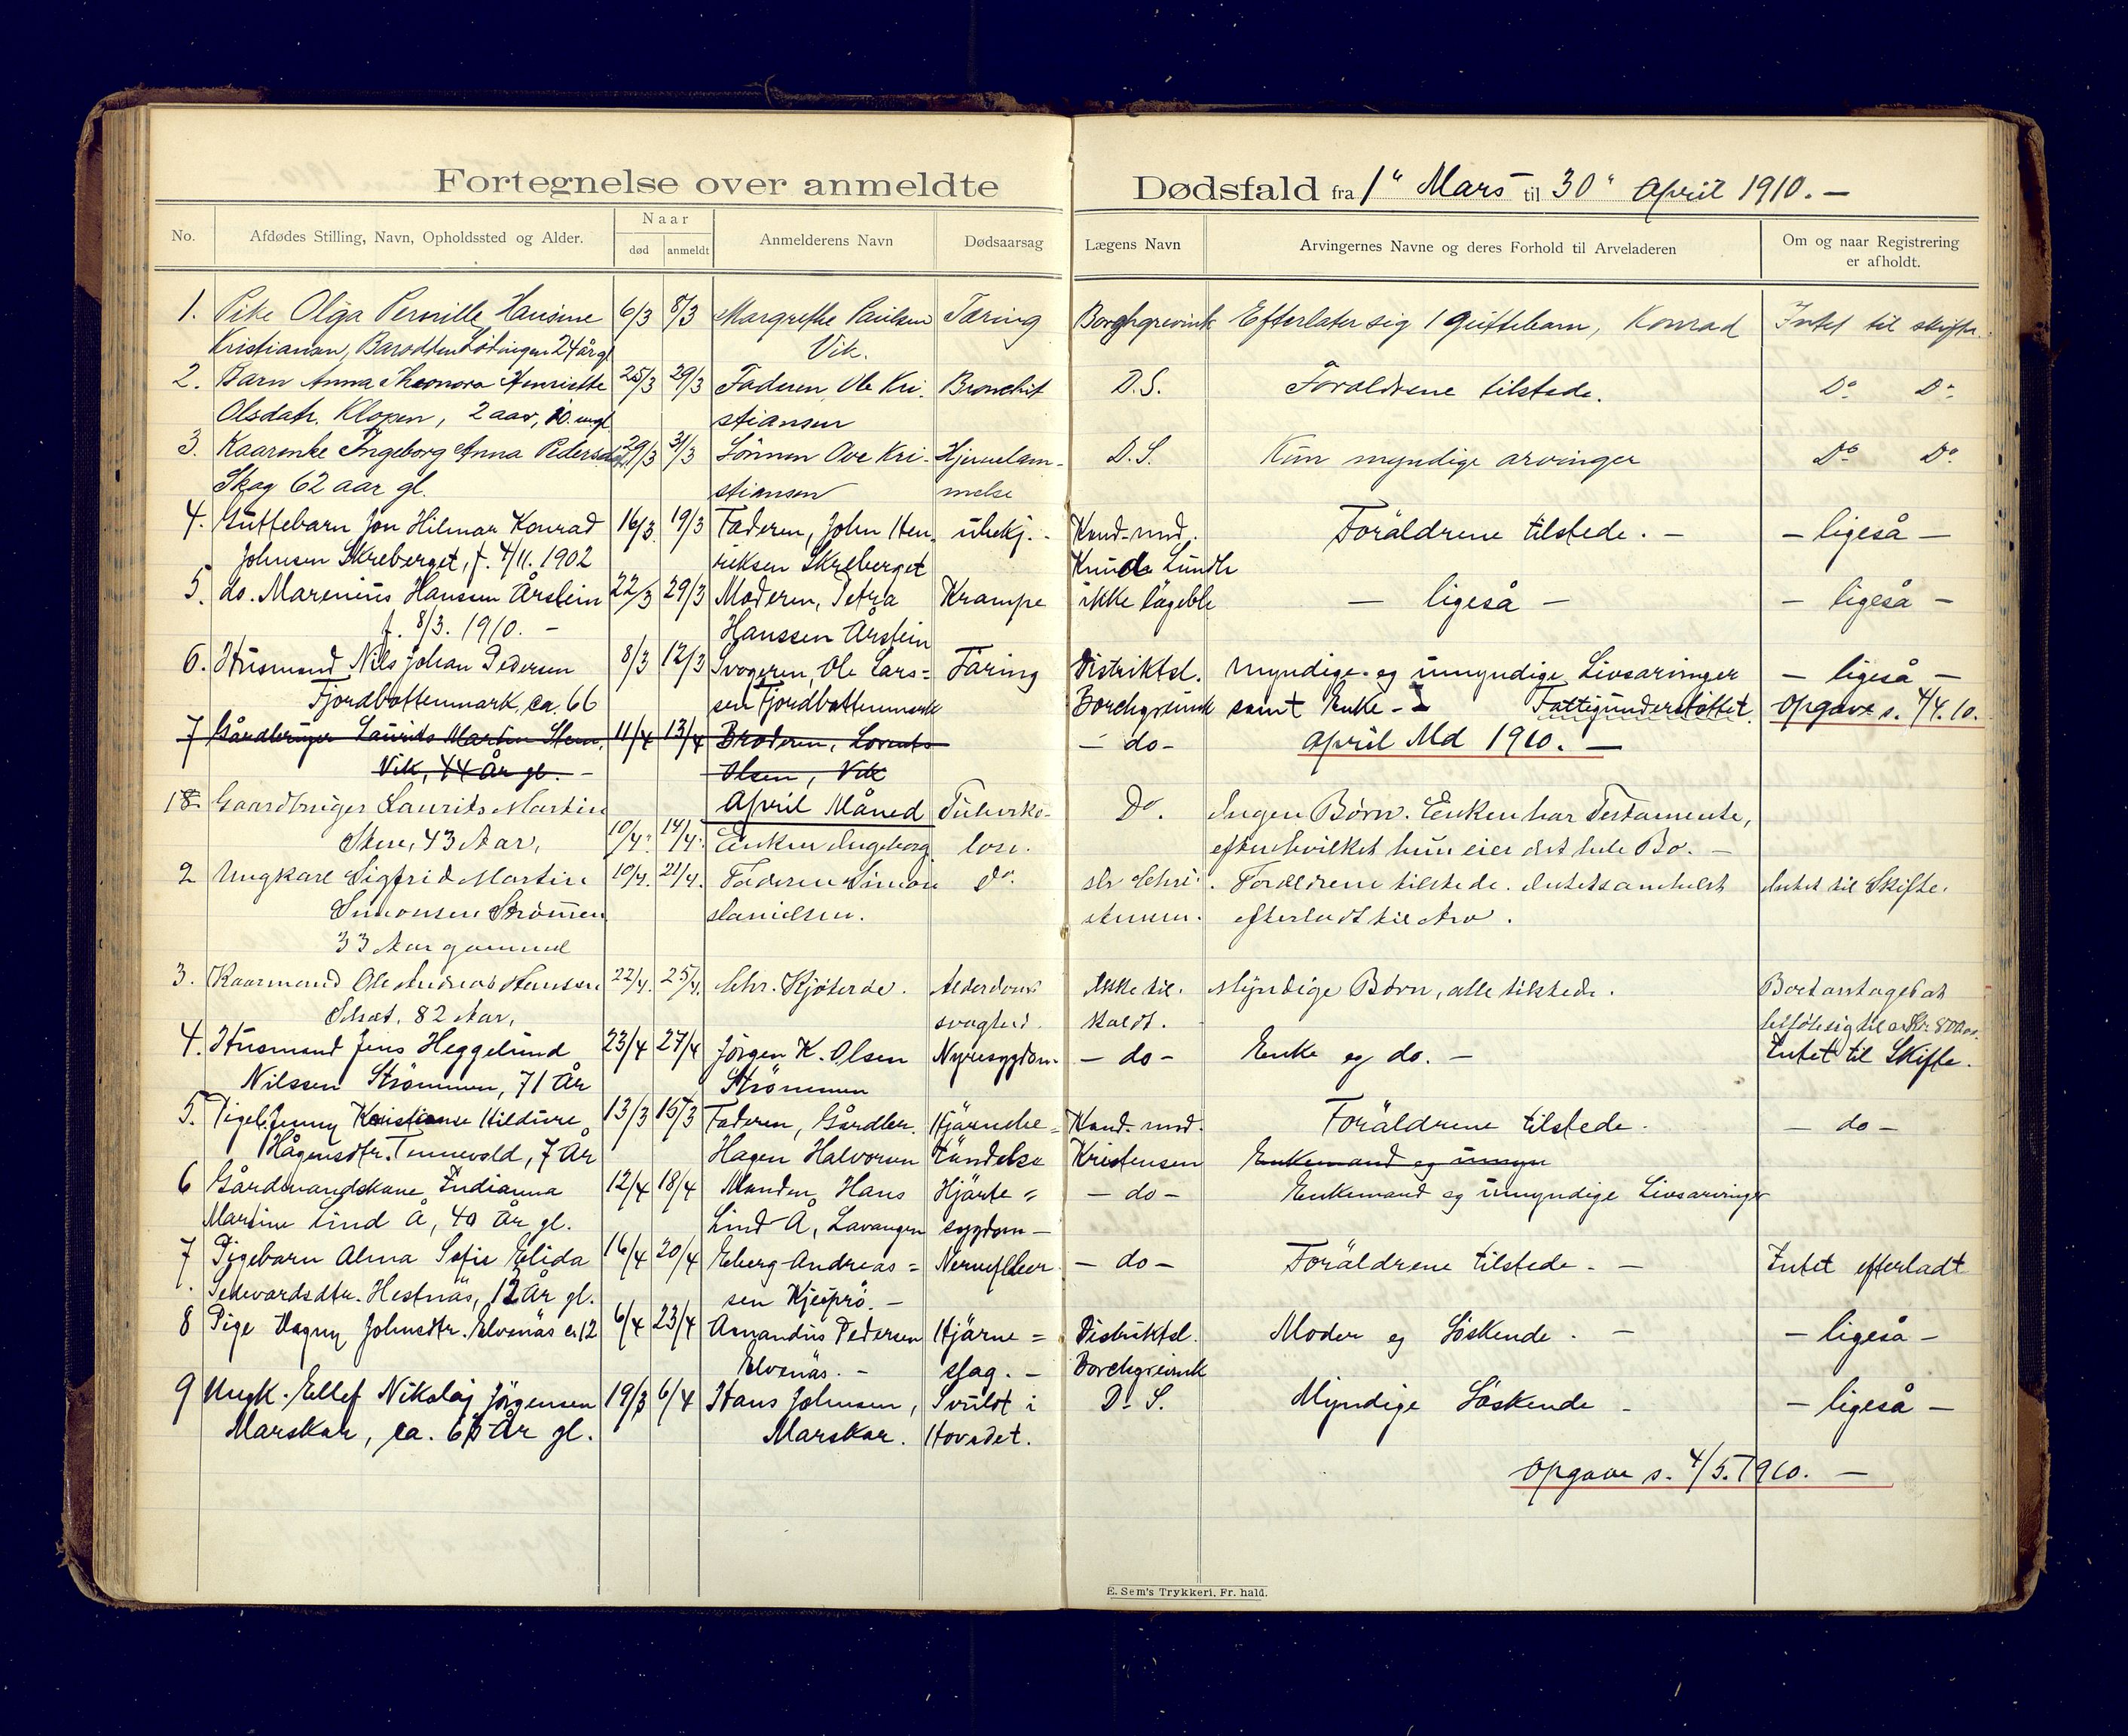 Fortegnelse over anmeldte Dødsfald fra 1" Mars til 30" April 1910. —
No. Afdødes Stilling, Navn, Opholdssted og Alder. Naar død anmeldt Anmelderens Navn Dødsaarsag Lægens Navn Arvingernes Navne og deres Forhold til Arveladeren Om og naar Registrering er afholdt.
1. Pike Olga Pernille Hansine 6/3 8/3 Margrethe Paulsen Tæring Borghgrevink Efterlater sig 1 guttebarn, Konrad Intet til skifte.
Kristiansen, Lødingen 24 år gl Vik.
2. Barn Anna Theonora Henriette 25/3 29/3 Faderen, Ole Kri- Bronchit D.S. Forældrene tilstede. Do Do
Olsdatr. Klopen, 2 aar, 10. mgl. stiansen
3. Kaarenke Ingeborg Anna Pedersdtr 29/3 31/3 Sönnen Ove Kri- Hjernelam- D.S. Kun myndige arvinger Do Do
Skog 62 aar gl. stiansen melse
4. Guttebarn Jon Hilmar Konrad 16/3 19/3 Faderen, John Hen- ubekj. - Kand. med. Foräldrene tilstede. - - ligeså -
Johnsen Skreberget, f. 4/11. 1902 riksen Skreberget Knud Lunde
5. do. Marenius Hansen Årstein 22/3 29/3 Moderen, Petra Krampe ikke lægebh - ligeså - - ligeså -
f. 8/3. 1910. - Hanssen Årstein
6. Husmand Nils Johan Pedersen 8/3 12/3 Svogeren, Ole Lars= Täring Distriktsl. Myndige og umyndige Livsarvinger - ligeså -
Fjordbottenmark, ca. 66 sen Fjordbottenmark Borchgrevink samt Enke - Fattigunderstöttet Opgave s. 4/4. 10.
7 Gårdbruger Laurits Martin Sten 11/4 13/4 Broderen, Lorents - do - April Md 1910. -
Vik, 44 År gl. - Olsen, Vik
18 Gaardbruger Laurits Martin April Måned Tuberku- Do. Ingen Børn. Enken har Testamente,
Sten, 43 Aar, 10/4. 14/4. Enken Ingeborg lose. efter hvilket hun eier det hele Bo. -
2 Ungkarl Sigfrid Martin 10/4. 21/4. Faderen Simon Do. dr Chri- Forældrene tilstede. Intetsomhelst Intet til Skifte.
Simonsen Strømmen Danielsen. stensen. efterladt til Arv.
33 Aar gammel
3. Kaarmand Ole Andreas Hansen 22/4. 25/4. Chr. Kjøterde. Alderdoms- Ikke til- Myndige Børn, alle tilstede. Boet antages at
82 Aar, svaghed. kaldt. beløbe sig til
4. Husmand Jens Heggelund 23/4 27/4 Jörgen K. Olsen Nyresygdom. - do - Enke og do. - Intet til Skifte.
Nilssen Strömmen, 71 År Strömmen
5. Pigeb. Jenny Kristianse Hildure 13/3 15/3 Faderen, Gårdbr. Hjärnebe= Kand. med. Foräldrene tilstede. - do -
Hågensdtr. Tennevold, 7 År Hagen Halvorsen tändelse Kristensen Enkemand og umyn
6 Gårdmandskone Indianna 12/4 18/4 Manden Hans Hjärte= - do - Enkemand og umyndige Livsarvinger
Martine Lind Å, 40 År gl. Lind Å, Lavangen sygdom -
7 Pigebarn Alma Sofie Elida 16/4 20/4 Eberg Andreas= Nervefeber - do - Foräldrene tilstede. - Intet efterladt
Sedevardsdtr. Hestnäs, 12 År gl. sen Kjesprö. -
8 Pige Dagny Johnsdtr. Elvenäs ca 12 6/4 23/4 Amandus Pedersen Hjärne= Distriktsl. Moder og Söskende. - - ligeså -
Elvenäs. - slag. - Borchgrevink
9 Ungk. Ellef Nikolaj Jörgensen 19/3 6/4 Hans Johnsen, Svulst i D. S. Myndige Söskende - - ligeså -
Marskar, ca. 65 År gl. Marskar. Hovedet.
Opgave s. 4/5. 1910. -
E. Sem's Trykkeri, Fr. hald.